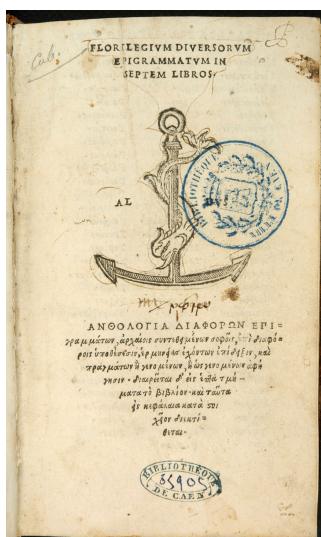 Cab.
FLORILEGIVM DIVERSORVM
EPIGRAMMATVM IN
SEPTEM LIBROS.
AL
BIBLIOTHÈQUE
ΑΝΘΟΛΟΓΙΑ ΔΙΑΦΟΡΩΝ ΕΠΙ=
γραμμάτων, ἀρχαίοις συντεθειμένων σοφοῖς, ἐπὶ διαφό=
ροις ὑποθέσεσιν, ἑρμηνείας ἐχόντων ἐπίδειξιν, καὶ
πραγμάτων ἢ γενομένων, ἢ ὡς γενομένων ἀφή
γησιν. διαιρεῖται δ' εἰς ἑπτὰ τμή-
ματα τὸ βιβλίον. καὶ ταῦτα
εἰς κεφάλαια κατὰ στοι
χεῖον διεκτί
θεται.
BIBLIOTHÈQUE
63905
DE CAEN